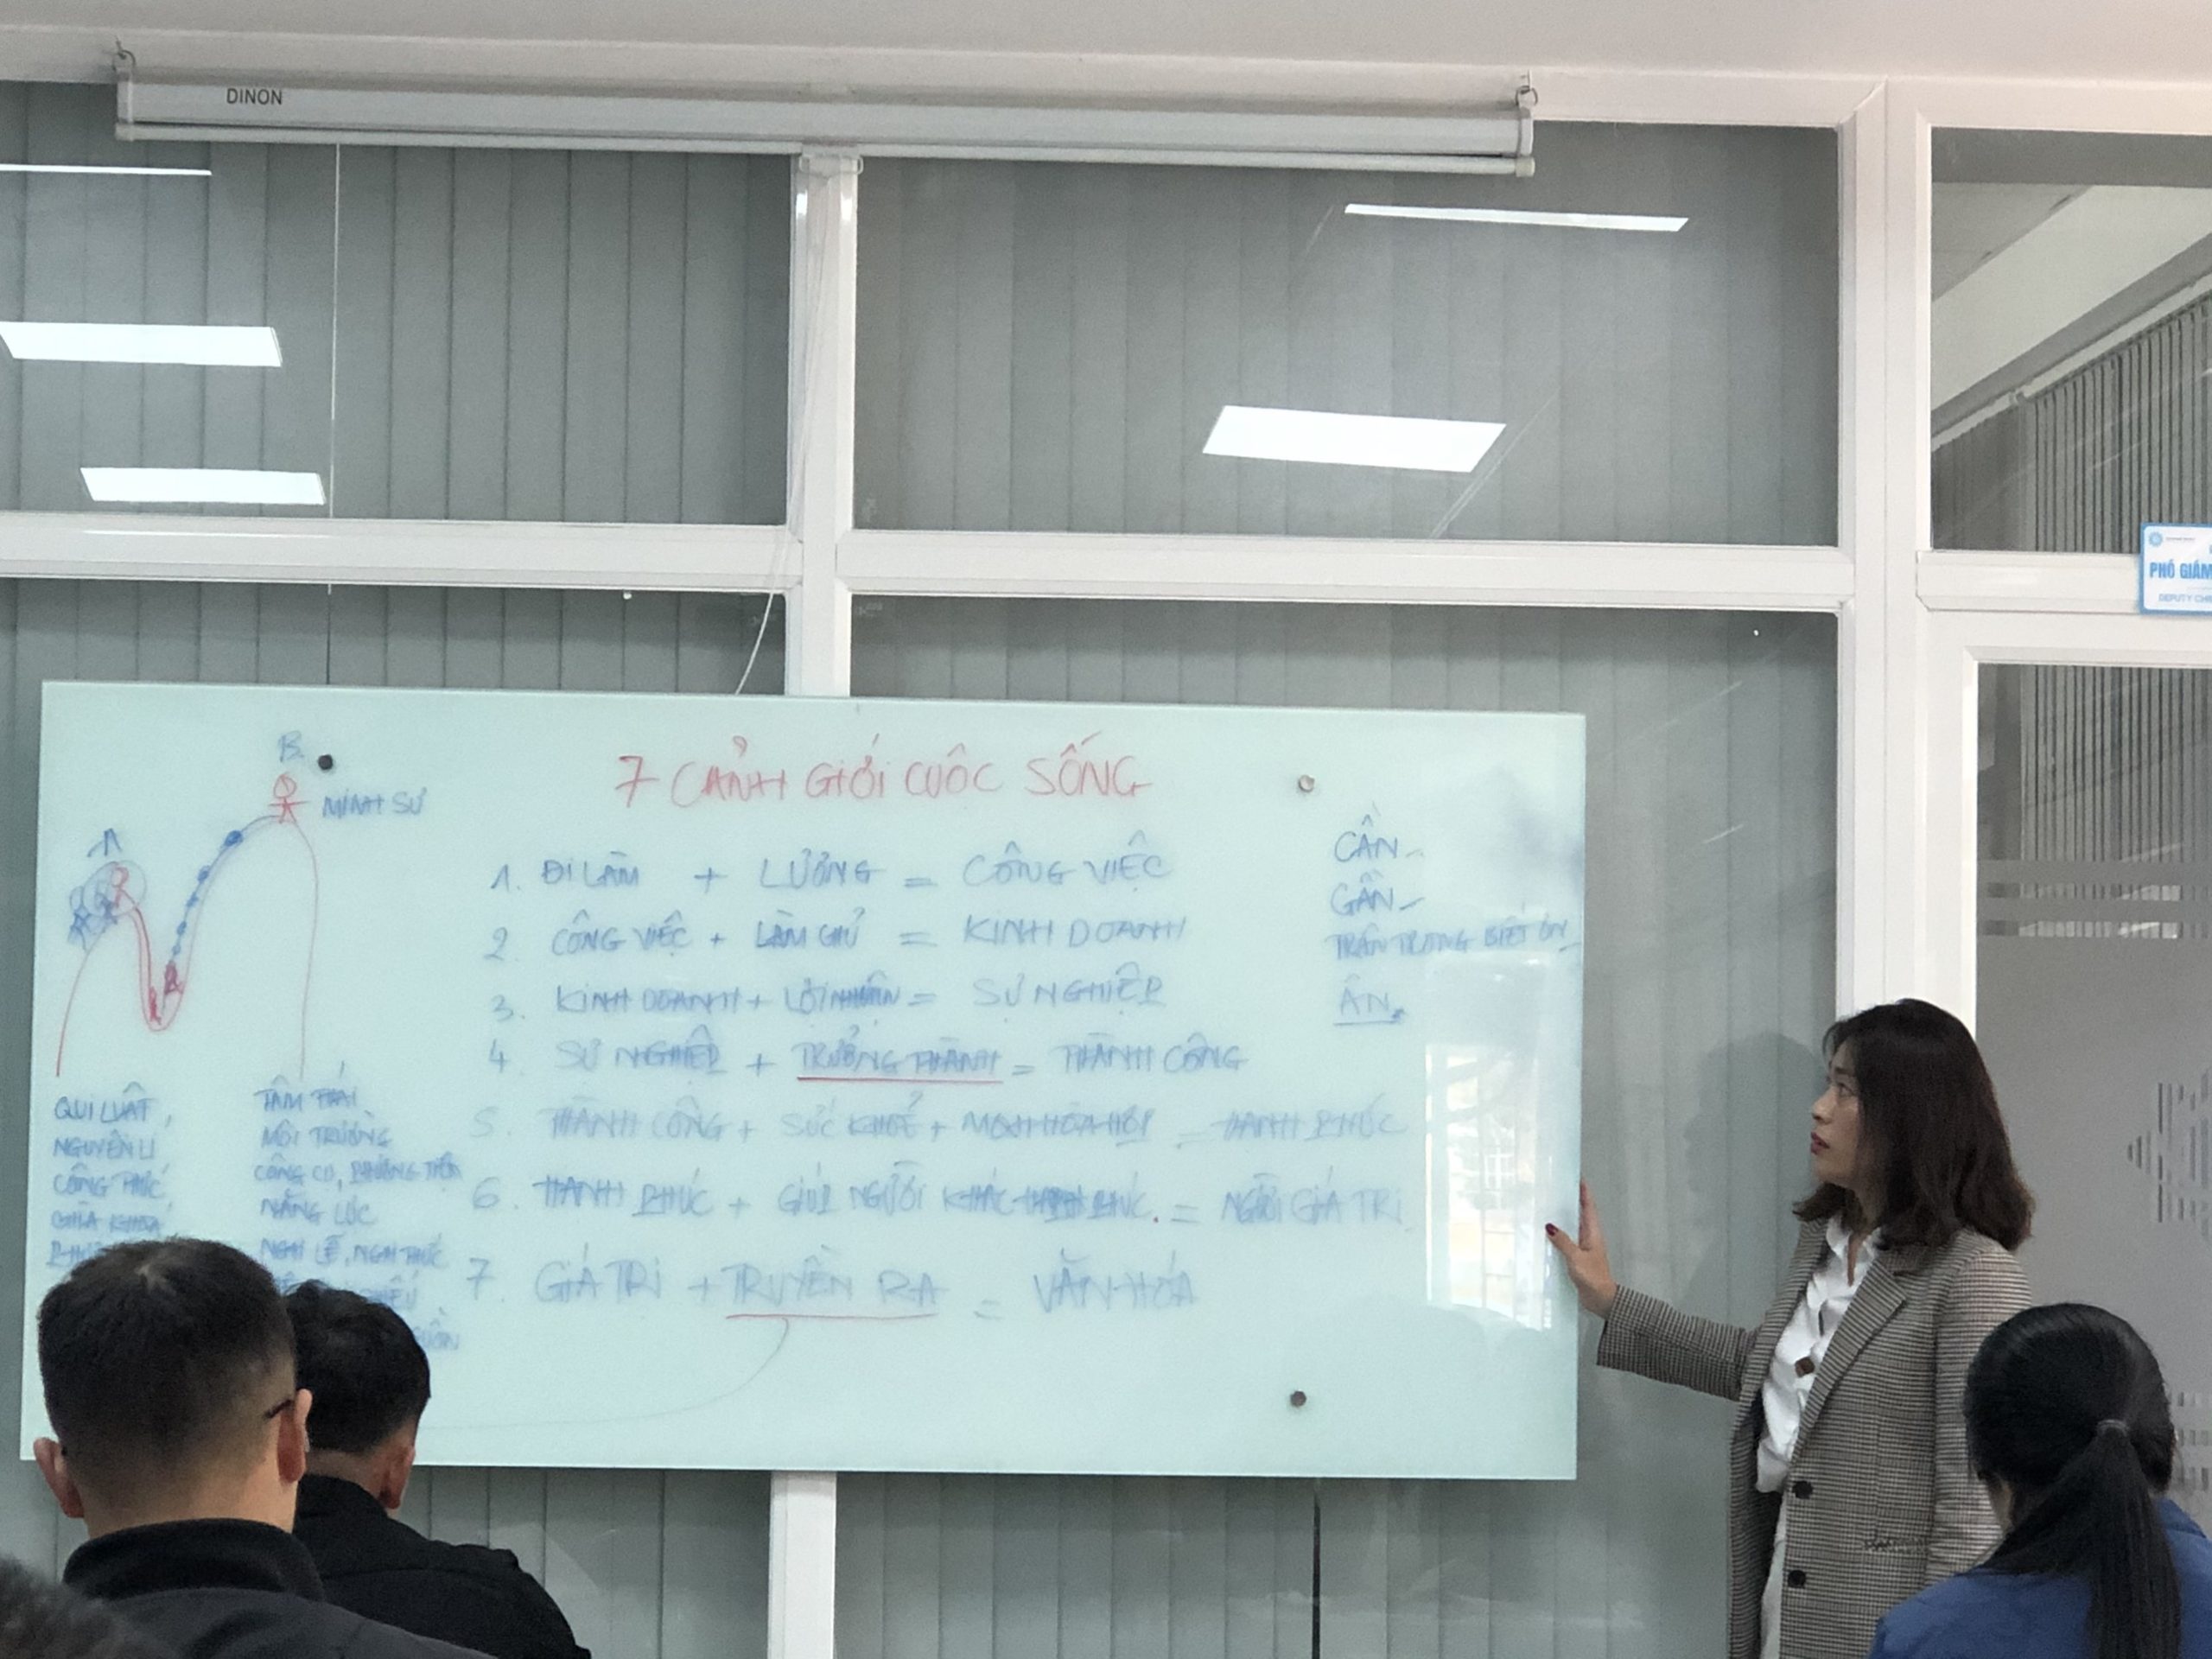 DINON
PHÓ GIÁM
DEPUTY CHI
7 CẢNH GIỚI CUÔC SỐNG
B.
MINH SƯ
A
1. ĐI LÀM + LƯƠNG = CÔNG VIỆC
2. CÔNG VIỆC + LÀM CHỦ = KINH DOANH
3. KINH DOANH + LỢI NHUẬN = SỰ NGHIỆP
4 SỰ NGHIỆP + TRƯỞNG THÀNH = THÀNH CÔNG
5. THÀNH CÔNG + SỨC KHOẺ + = HẠNH PHÚC
6. HẠNH PHÚC + GIÚP NGƯỜI KHÁC HẠNH PHÚC. = NGƯỜI GIÁ TRỊ.
7. GIÁ TRỊ + TRUYỀN RA = VĂN HÓA
CẦN
GẦN
TRÂN TRỌNG BIẾT ƠN
ÂN.
QUI LUẬT,
NGUYÊN LÍ
CÔNG THỨC
CHÌA KHOÁ
TÂM THÁI
MÔI TRƯỜNG
CÔNG CỤ, PHƯƠNG TIỆN
NĂNG LỰC
NGHI LỄ, NGHI THỨC